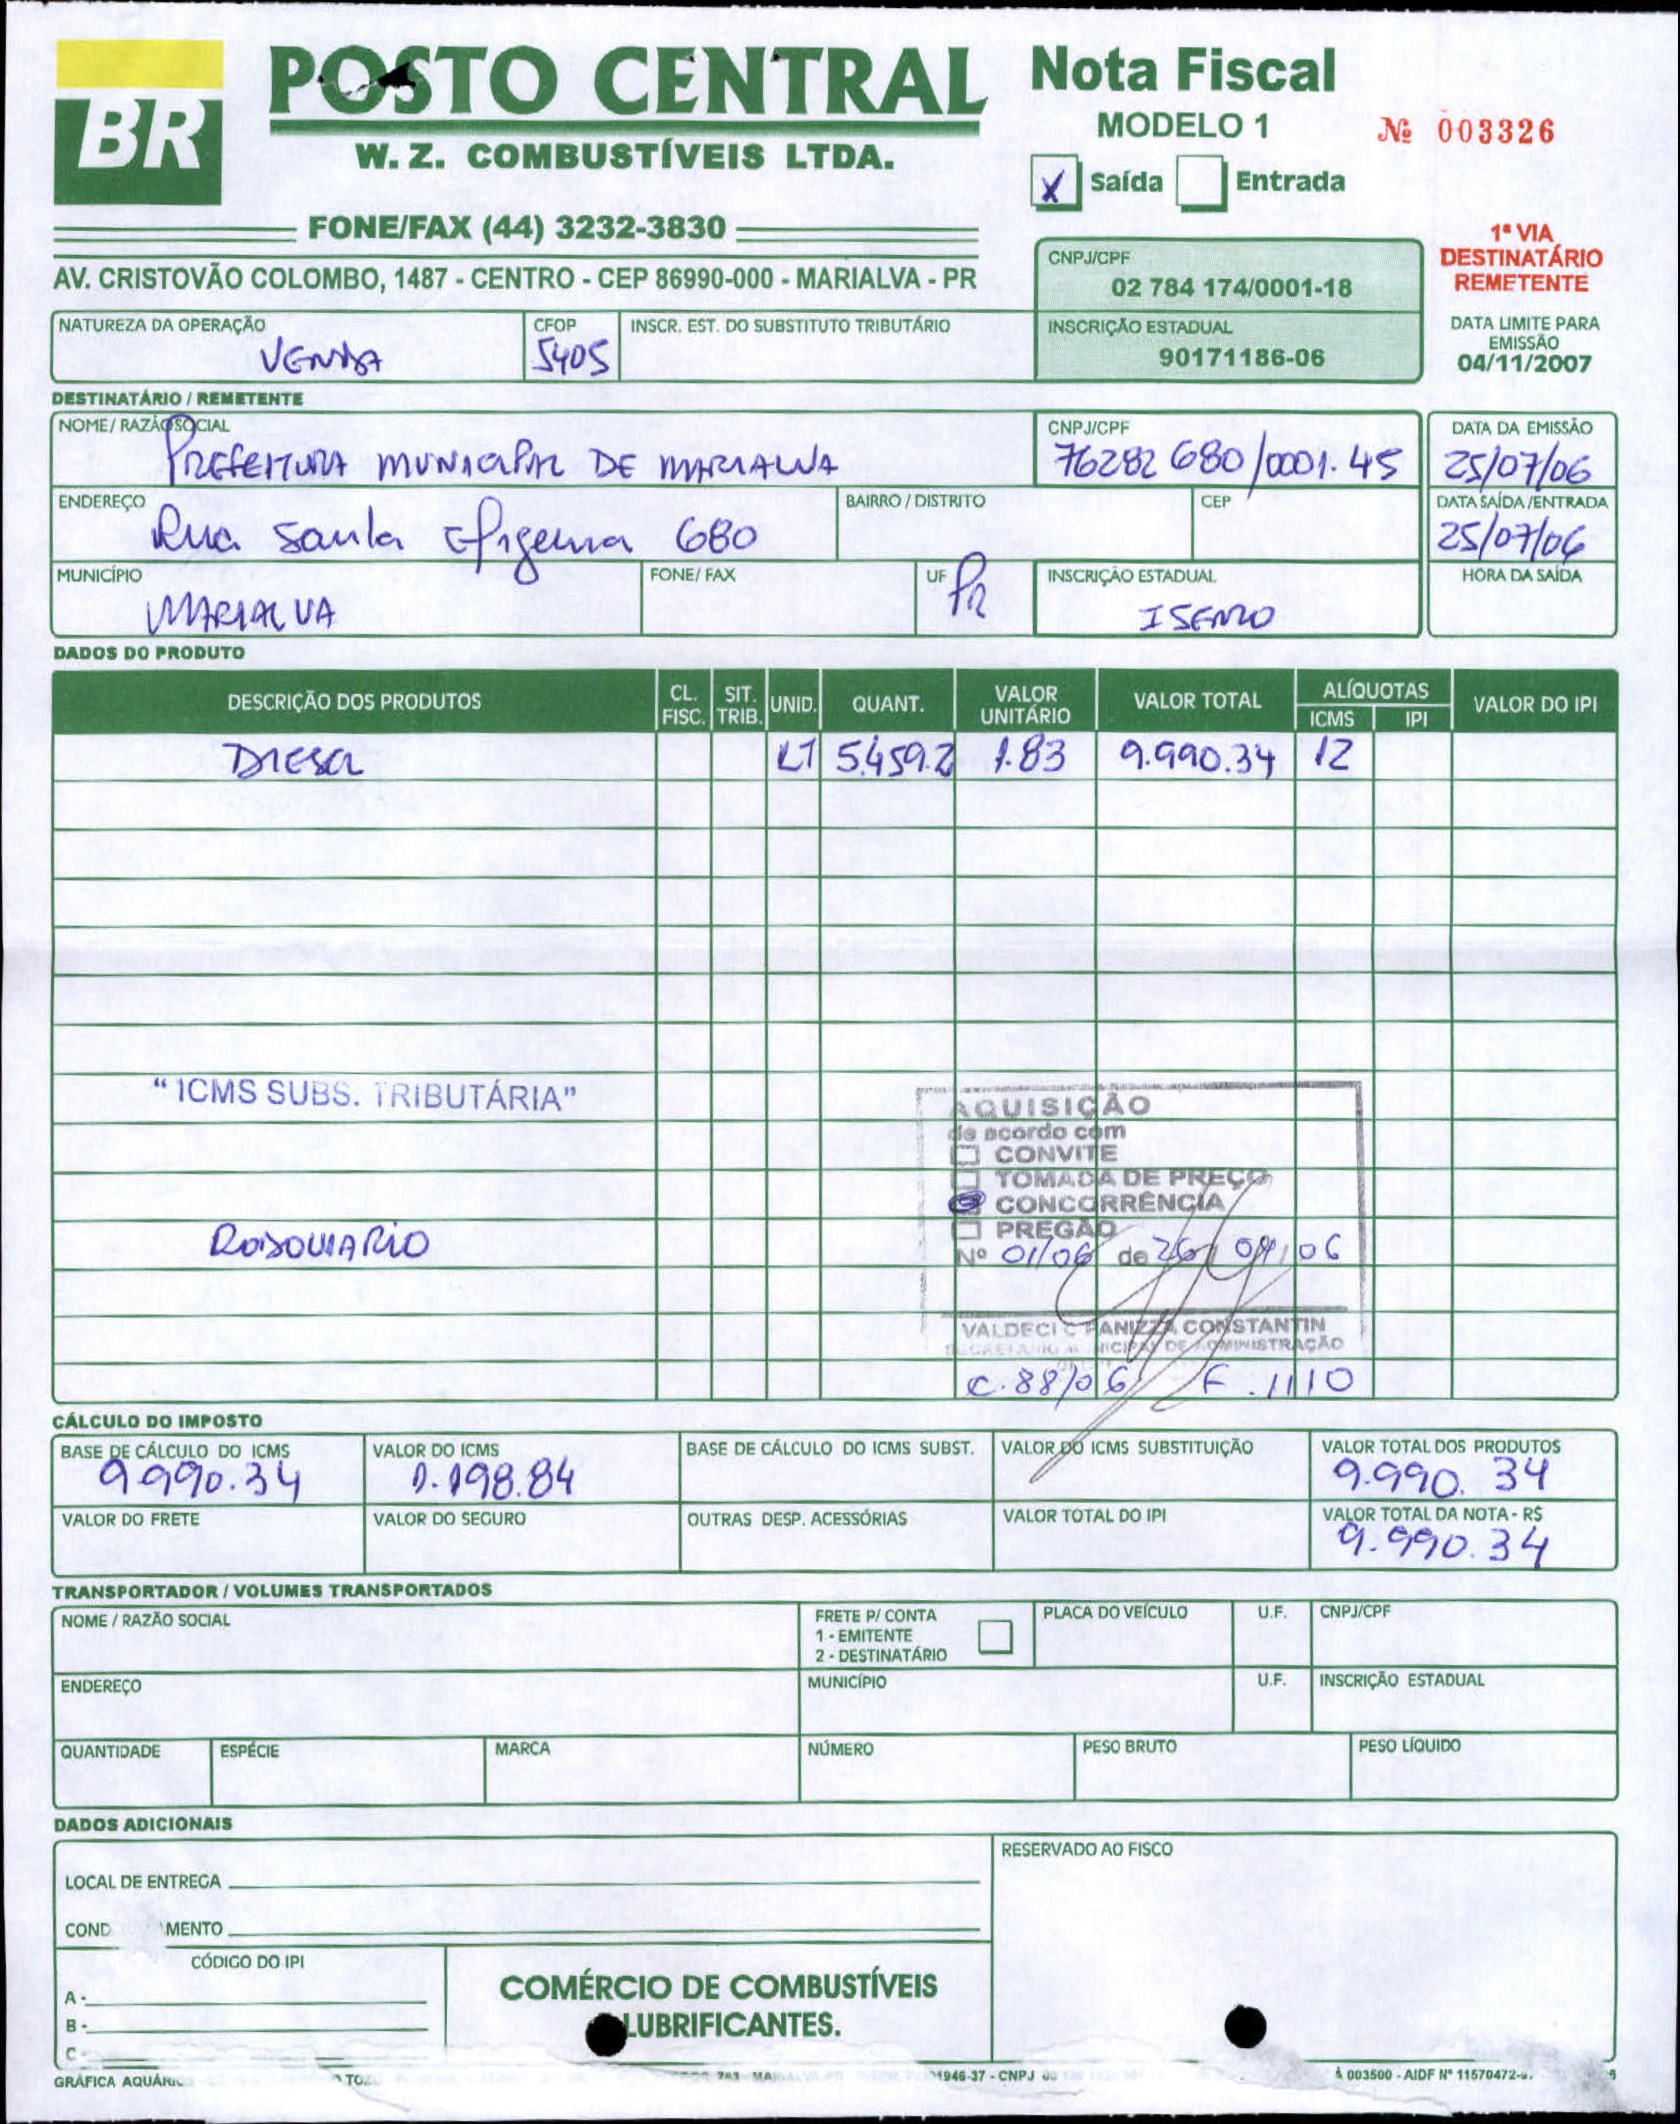 BR
POSTO CENTRAL
W. Z. COMBUSTÍVEIS LTDA.
FONE/FAX (44) 3232-3830
AV. CRISTOVÃO COLOMBO, 1487 - CENTRO - CEP 86990-000 - MARIALVA - PR
Nota Fiscal
MODELO 1
Nº 003326
X Saída Entrada
1ª VIA
DESTINATÁRIO
REMETENTE
CNPJ/CPF
02 784 174/0001-18
INSCRIÇÃO ESTADUAL
90171186-06
DATA LIMITE PARA
EMISSÃO
04/11/2007
NATUREZA DA OPERAÇÃO CFOP INSCR. EST. DO SUBSTITUTO TRIBUTÁRIO
VENDA 5405
DESTINATÁRIO / REMETENTE
NOME / RAZÃO SOCIAL CNPJ/CPF DATA DA EMISSÃO
PREFEITURA MUNICIPAL DE MARIALVA 76282680/0001.45 25/07/06
ENDEREÇO BAIRRO / DISTRITO CEP DATA SAÍDA/ENTRADA
Rua Santa Efigenia 680 25/07/06
MUNICÍPIO FONE / FAX UF INSCRIÇÃO ESTADUAL HORA DA SAÍDA
MARIALVA PR ISENTO
DADOS DO PRODUTO
DESCRIÇÃO DOS PRODUTOS CL. FISC. SIT. TRIB. UNID. QUANT. VALOR UNITÁRIO VALOR TOTAL ALÍQUOTAS ICMS IPI VALOR DO IPI
DIESEL LT 5.459.2 1.83 9.990.34 12
"ICMS SUBS. TRIBUTÁRIA"
AQUISIÇÃO
de acordo com
CONVITE
TOMADA DE PREÇO
CONCORRÊNCIA
PREGÃO
Nº 01/06 de 26/04/06
RODOVIARIO
VALDECI C PANIZZA CONSTANTIN
SECRETARIO MUNICIPAL DE ADMINISTRAÇÃO
C.88/06 F.1110
CÁLCULO DO IMPOSTO
BASE DE CÁLCULO DO ICMS VALOR DO ICMS BASE DE CÁLCULO DO ICMS SUBST. VALOR DO ICMS SUBSTITUIÇÃO VALOR TOTAL DOS PRODUTOS
9.990.34 1.198.84 9.990.34
VALOR DO FRETE VALOR DO SEGURO OUTRAS DESP. ACESSÓRIAS VALOR TOTAL DO IPI VALOR TOTAL DA NOTA - R$
9.990.34
TRANSPORTADOR / VOLUMES TRANSPORTADOS
NOME / RAZÃO SOCIAL FRETE P/ CONTA PLACA DO VEÍCULO U.F. CNPJ/CPF
1 - EMITENTE
2 - DESTINATÁRIO
ENDEREÇO MUNICÍPIO U.F. INSCRIÇÃO ESTADUAL
QUANTIDADE ESPÉCIE MARCA NÚMERO PESO BRUTO PESO LÍQUIDO
DADOS ADICIONAIS
RESERVADO AO FISCO
LOCAL DE ENTREGA
COND MENTO
CÓDIGO DO IPI
A -
B -
C -
COMÉRCIO DE COMBUSTÍVEIS
LUBRIFICANTES.
GRÁFICA 1946-37 - CNPJ À 003500 - AIDF Nº 11570472-